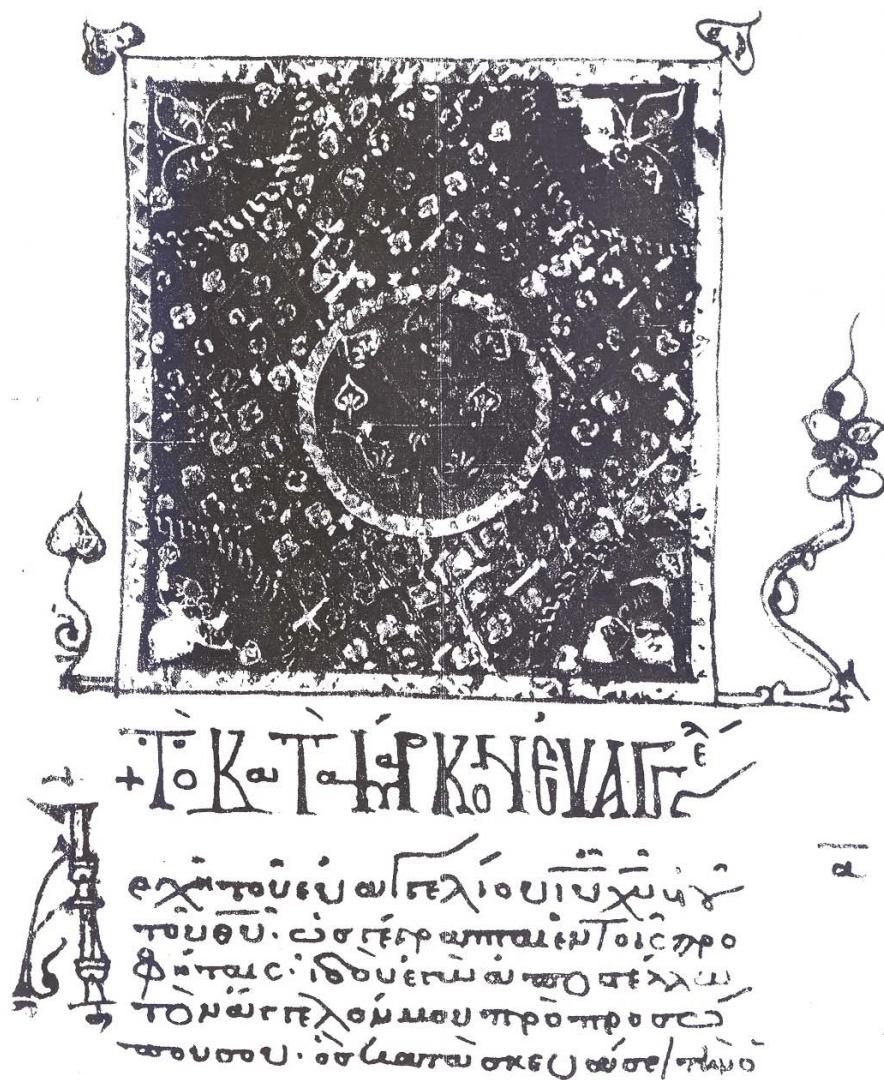 + Τὸ κατὰ Μάρκον εὐαγγέ
α
Ἀρχὴ τοῦ εὐαγγελίου ιῦ χῦ υἱοῦ
τοῦ θῦ· ὡς γέγραπται ἐν τοῖς προ
φήταις· ἰδοὺ ἐγὼ ἀποστέλλω
τὸν ἄγγελόν μου πρὸ προσώ
που σου· ὃς κατασκευάσει τὴν ὁ